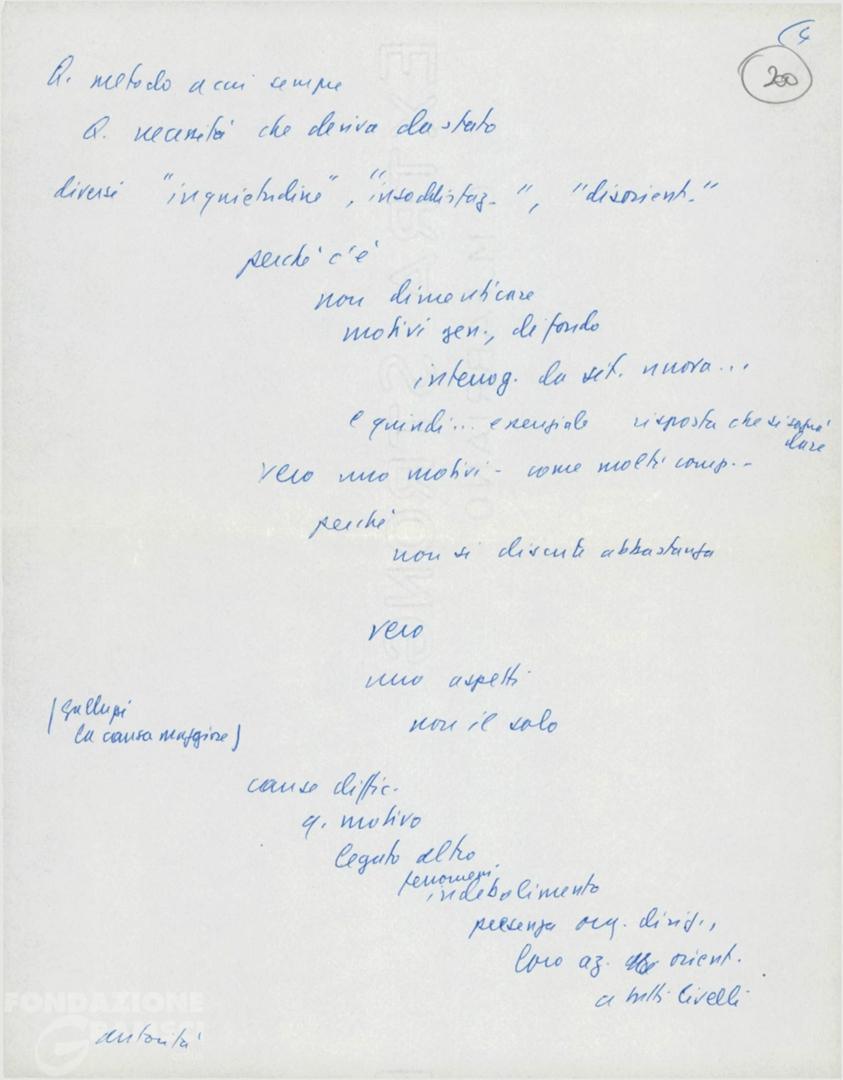 4
200
Q. metodo a cui sempre
Q. necessità che deriva da stato
diversi "inquietudine", "insoddisfaz.", "disorient."
perché c'è
non dimenticare
motivi gen., di fondo
interrog. da sit. nuova...
e quindi... essenziale risposta che si saprà
dare
vero uno motivi - come molti comp...
perché
non si discute abbastanza
vero
uno aspetti
non il solo
(Galluppi
la causa maggiore)
cause diffic.
q. motivo
legato altro
fenomeni
indebolimento
presenza org. dirig.,
loro az. orient.
a tutti livelli
autorità
FONDAZIONE
GRAMSCI